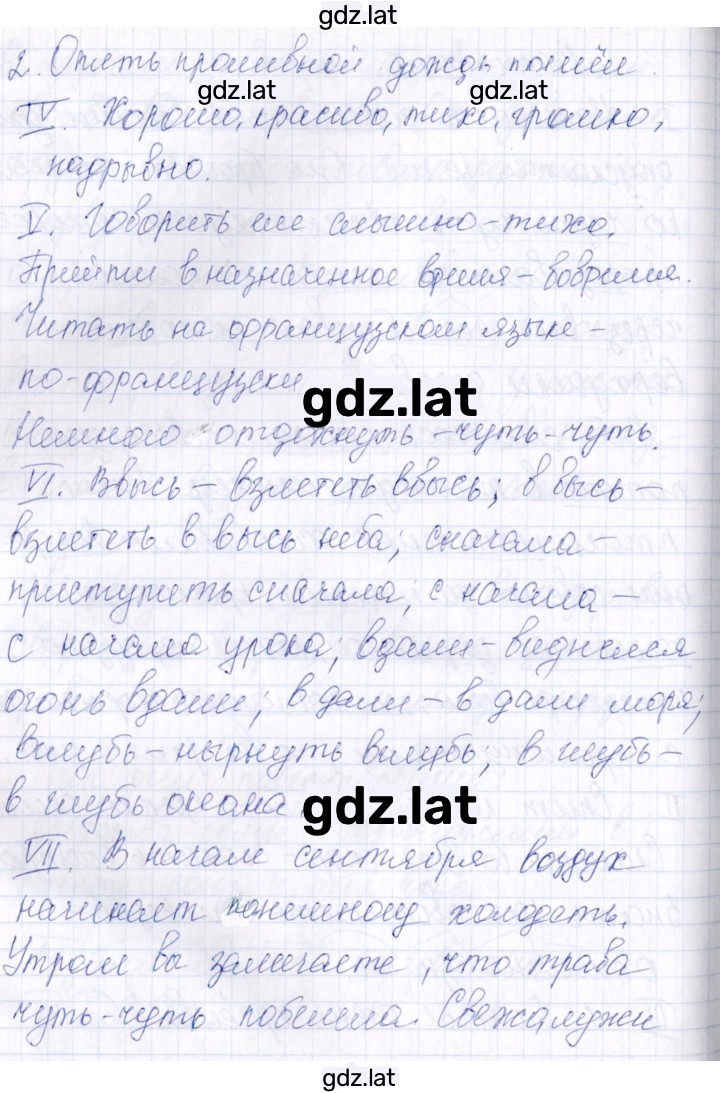 gdz.lat
2. Опять проливной дождь пошёл.
gdz.lat gdz.lat
IV. Хорошо, красиво, тихо, громко,
надрывно.
V. Говорить еле слышно – тихо.
Прийти в назначенное время – вовремя.
Читать на французском языке –
по-французски
gdz.lat
Немного отдохнуть – чуть-чуть.
VI. Ввысь – взлететь ввысь; в высь –
взлететь в высь неба; сначала –
приступить сначала; с начала –
с начала урока; вдали – виднелся
огонь вдали; в дали – в дали моря;
вглубь – нырнуть вглубь; в глубь –
в глубь океана.
gdz.lat
VII. В начале сентября воздух
начинает понемногу холодать.
Утром вы замечаете, что трава
чуть-чуть побелела. Свежа лужи
gdz.lat